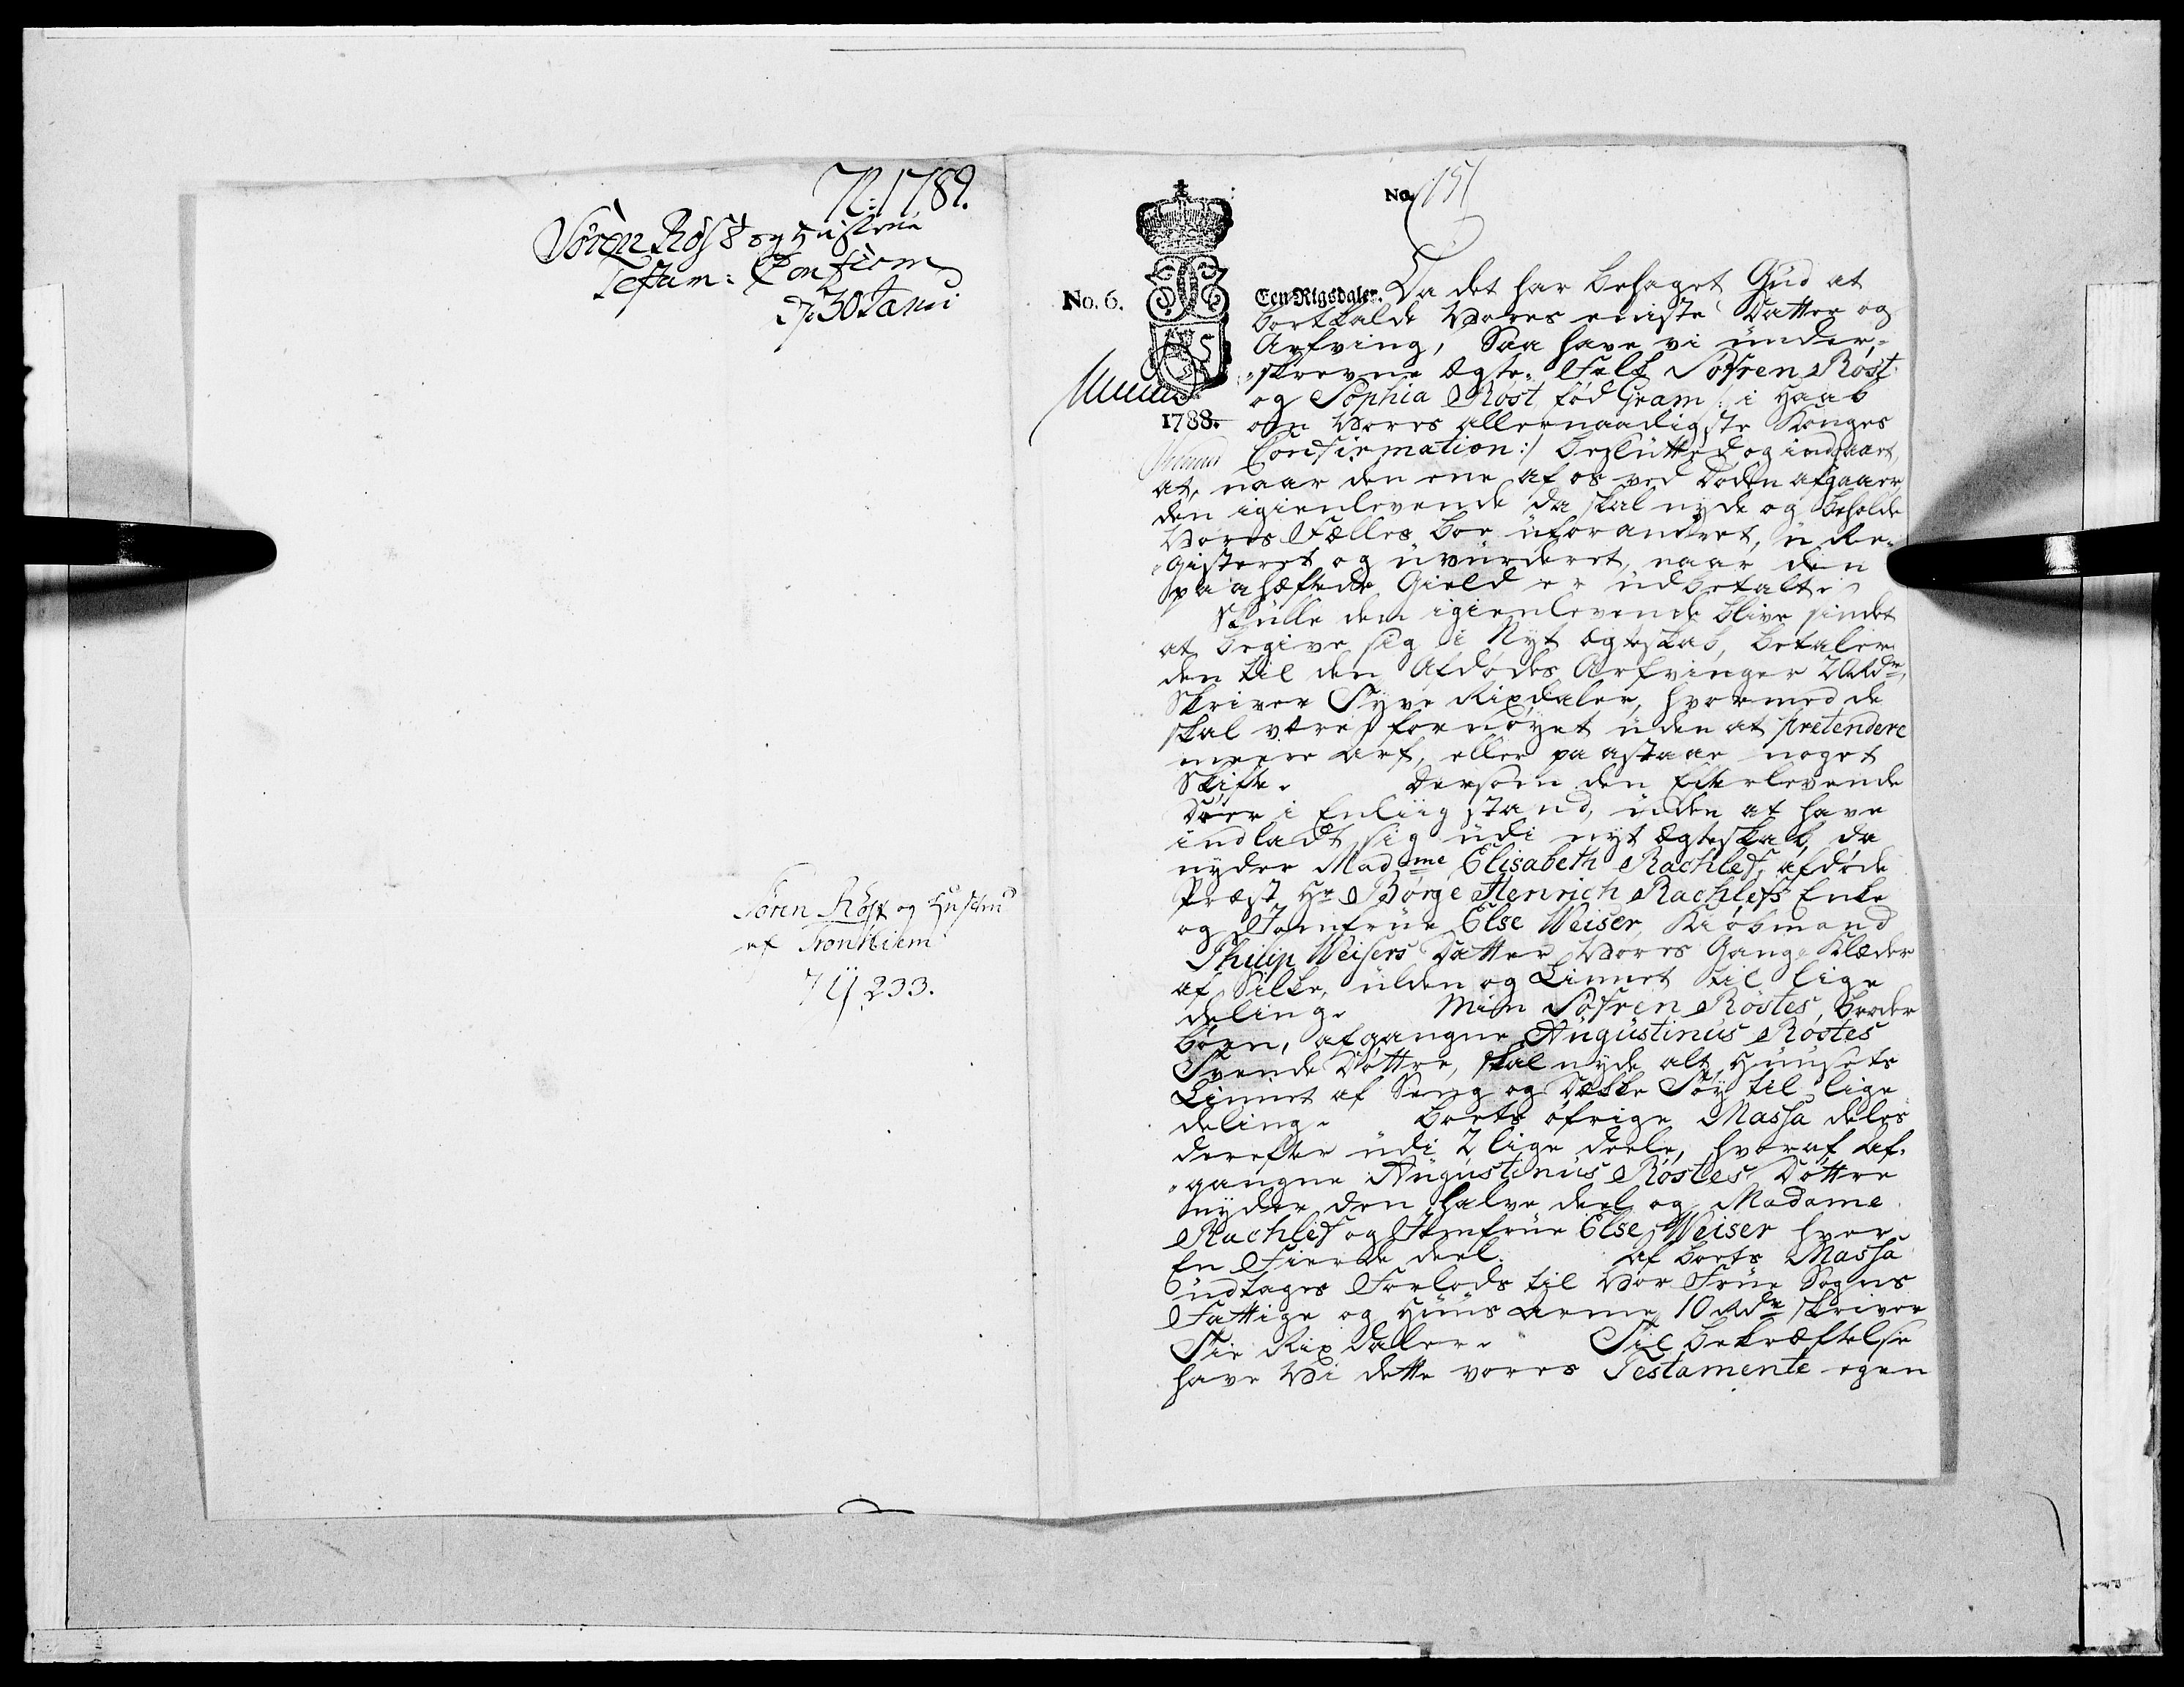 N: 1789.
Sören Röst og Hustrue
Testam: Confirm
d. 30 Janui
Sören Röst og Hustrue
af Tronhiem
7 233.
No. 151
No. 6.
Een Rigsdaler.
1788.
Da det har behaget Gud at
bortkalde Vores eeniste Datter og
Arfving, Saa have vi under-
skrevne Ægte-Folk Söfren Röst
og Sophia Röst fød Gram /: i Haab
om Vores allernaadigste Konges
Confirmation :/ beslutted og indgaaet,
at, naar den ene af os ved Døden afgaaer
den igienlevende da skal nyde og beholde
Vores Fælles Boe uforandret, u Re-
gisteret og uvurderet, naar den
paahæftede Gield er udbetalt.
Skulle den igienlevende blive sindet
at begive sig i Nyt Ægteskab, betaler
den til den Afdødes Arfvinger 20 Rdr,
Skriver Tyve Rixdaler, hvormed de
skal være fornøyet uden at pretendere
meere Arf, eller paastaae noget
Skifte. Dersom den Efterlevende
Döer i Enliig stand, uden at have
indladt sig udi nyt Ægteskab, da
nyder Madme Elisabeth Rachlef, afdøde
Præst Hr Börge Henrich Rachlefs Enke
og Jomfrue Else Weiser, Kiøbmand
Philip Weisers Datter Vores Gang-Klæder
af Silke, ulden og Linnet til lige
deling. Min Söfren Röstes, broder
børn, afgangne Augustinus Röstes
Tvende Döttre, skal nyde alt Huusets
Linnet af Seng og Dække Töy til lige
deling. Boets öfrige Massa deles
derefter udi 2 lige deele, hvoraf af-
gangne Augustinus Röstes Döttre
nyder den halve deel og Madame
Rachlef og Jomfrue Else Weiser hver
En Fierde deel. Af Boets Massa
udtages Forlods til Vor Frue Sogns
Fattige og Huus arme 10 Rdr skriver
Tie Rixdaler. Til bekræftelse
have Vi dette vores Testamente egen